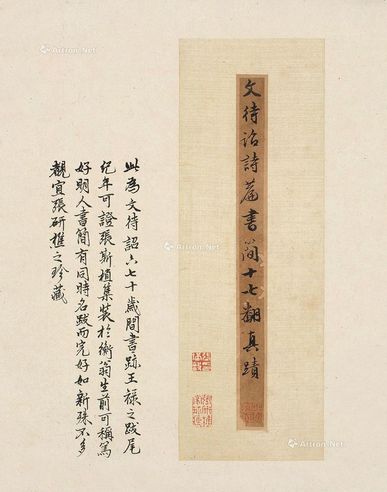 文待詔詩蕑書簡十七翻真蹟
此為文待詔六七十歲間書跡王祿之跋尾
紀年可證張斯植集裝於衡翁生前可稱篤
好明人書簡有同時名跋而完好如新殊不多
觀宜張研樵之珍藏
Artron.Net
Artron.Net
Artron.Net
Artron.Net